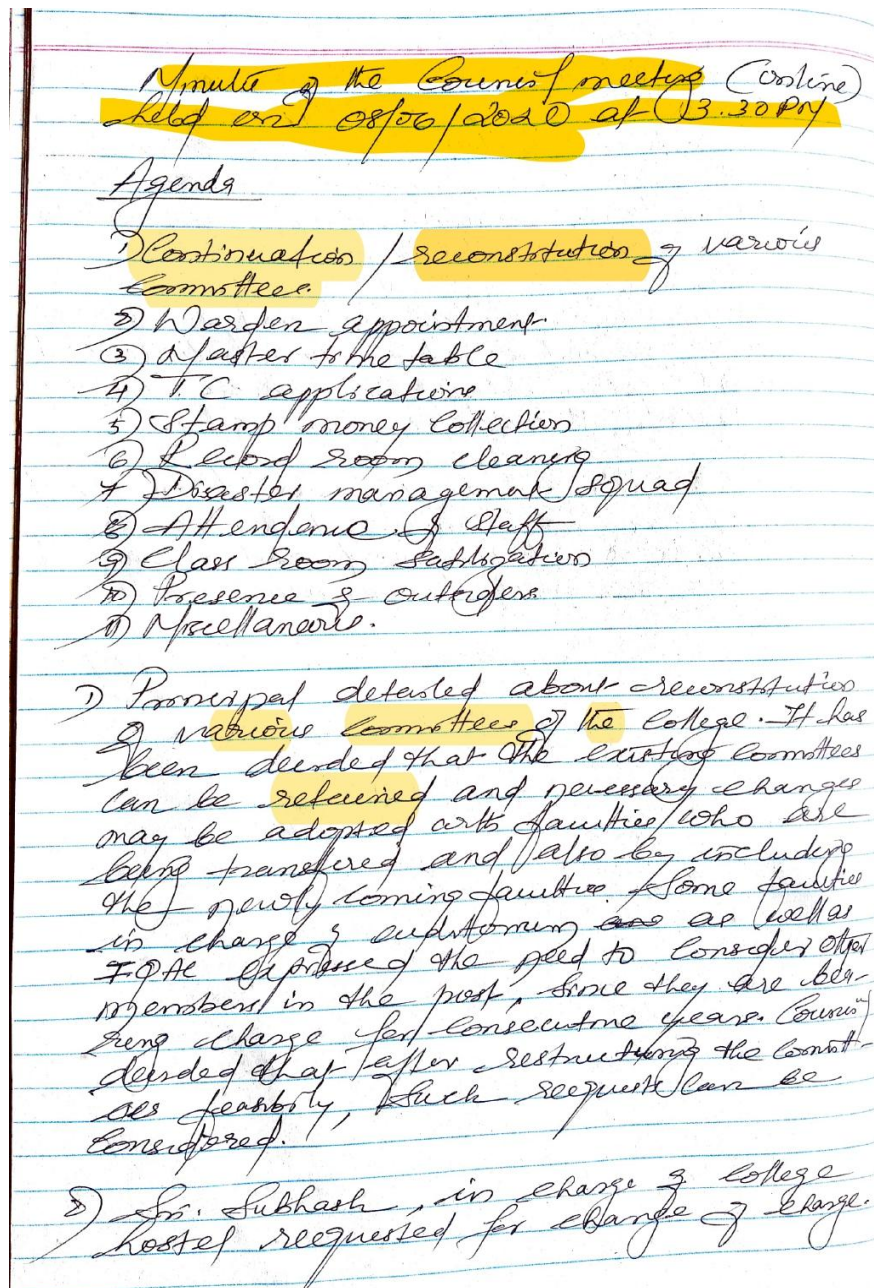 Minute of the Council meeting (online)
held on 08/06/2020 at 3.30 PM
Agenda
1) Continuation / reconstitution of various
committees.
2) Warden appointment
3) Master time table
4) T.C applications
5) Stamp money collection
6) Record room cleaning
7) Disaster management squad
8) Attendance of staff
9) Class room
10) Presence of outsiders
11) Miscellaneous.
1) Principal detailed about reconstitution
of various committees of the college. It has
been decided that the existing committees
can be retained and necessary changes
may be adopted with faculties who are
being transfered and also by including
the newly coming faculties. Some faculties
in charge of auditorium as well as
IQAC expressed the need to consider other
members in the post, since they are bea-
ring charge for consecutive years. Council
decided that after restructuring the committ-
ees feasibly, such request can be
considered.
2) Sri. Subhash, in charge of college
hostel requested for change of charge.